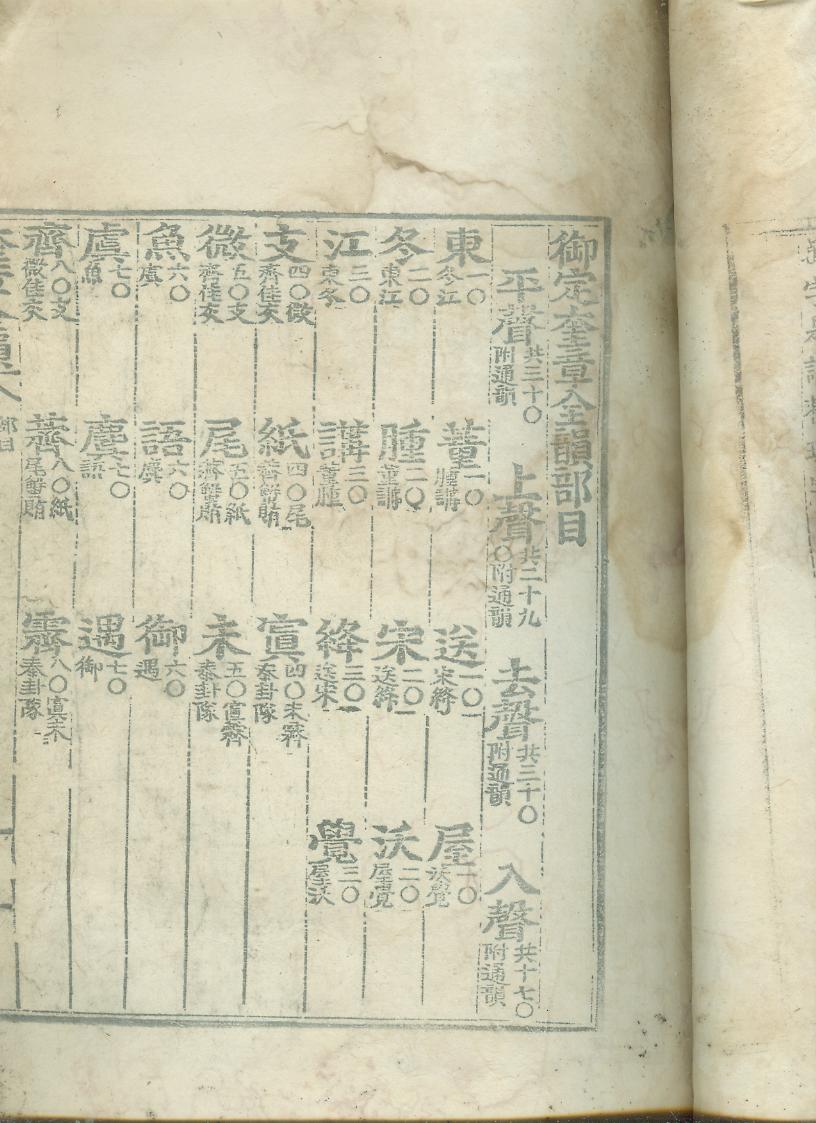 御定奎章全韻部目
平聲共三十○附通韻 上聲共二十九○附通韻 去聲共三十○附通韻 入聲共十七○附通韻
東一○冬江 董一○腫講 送一○宋絳 屋一○沃覺
冬二○東江 腫二○董講 宋二○送絳 沃二○屋覺
江三○東冬 講三○董腫 絳三○送宋 覺三○屋沃
支四○微齊佳灰 紙四○尾薺蟹賄 寘四○未霽泰卦隊
微五○支齊佳灰 尾五○紙薺蟹賄 未五○寘霽泰卦隊
魚六○虞 語六○麌 御六○遇
虞七○魚 麌七○語 遇七○御
齊八○支微佳灰 薺八○紙尾蟹賄 霽八○寘未泰卦隊
部目